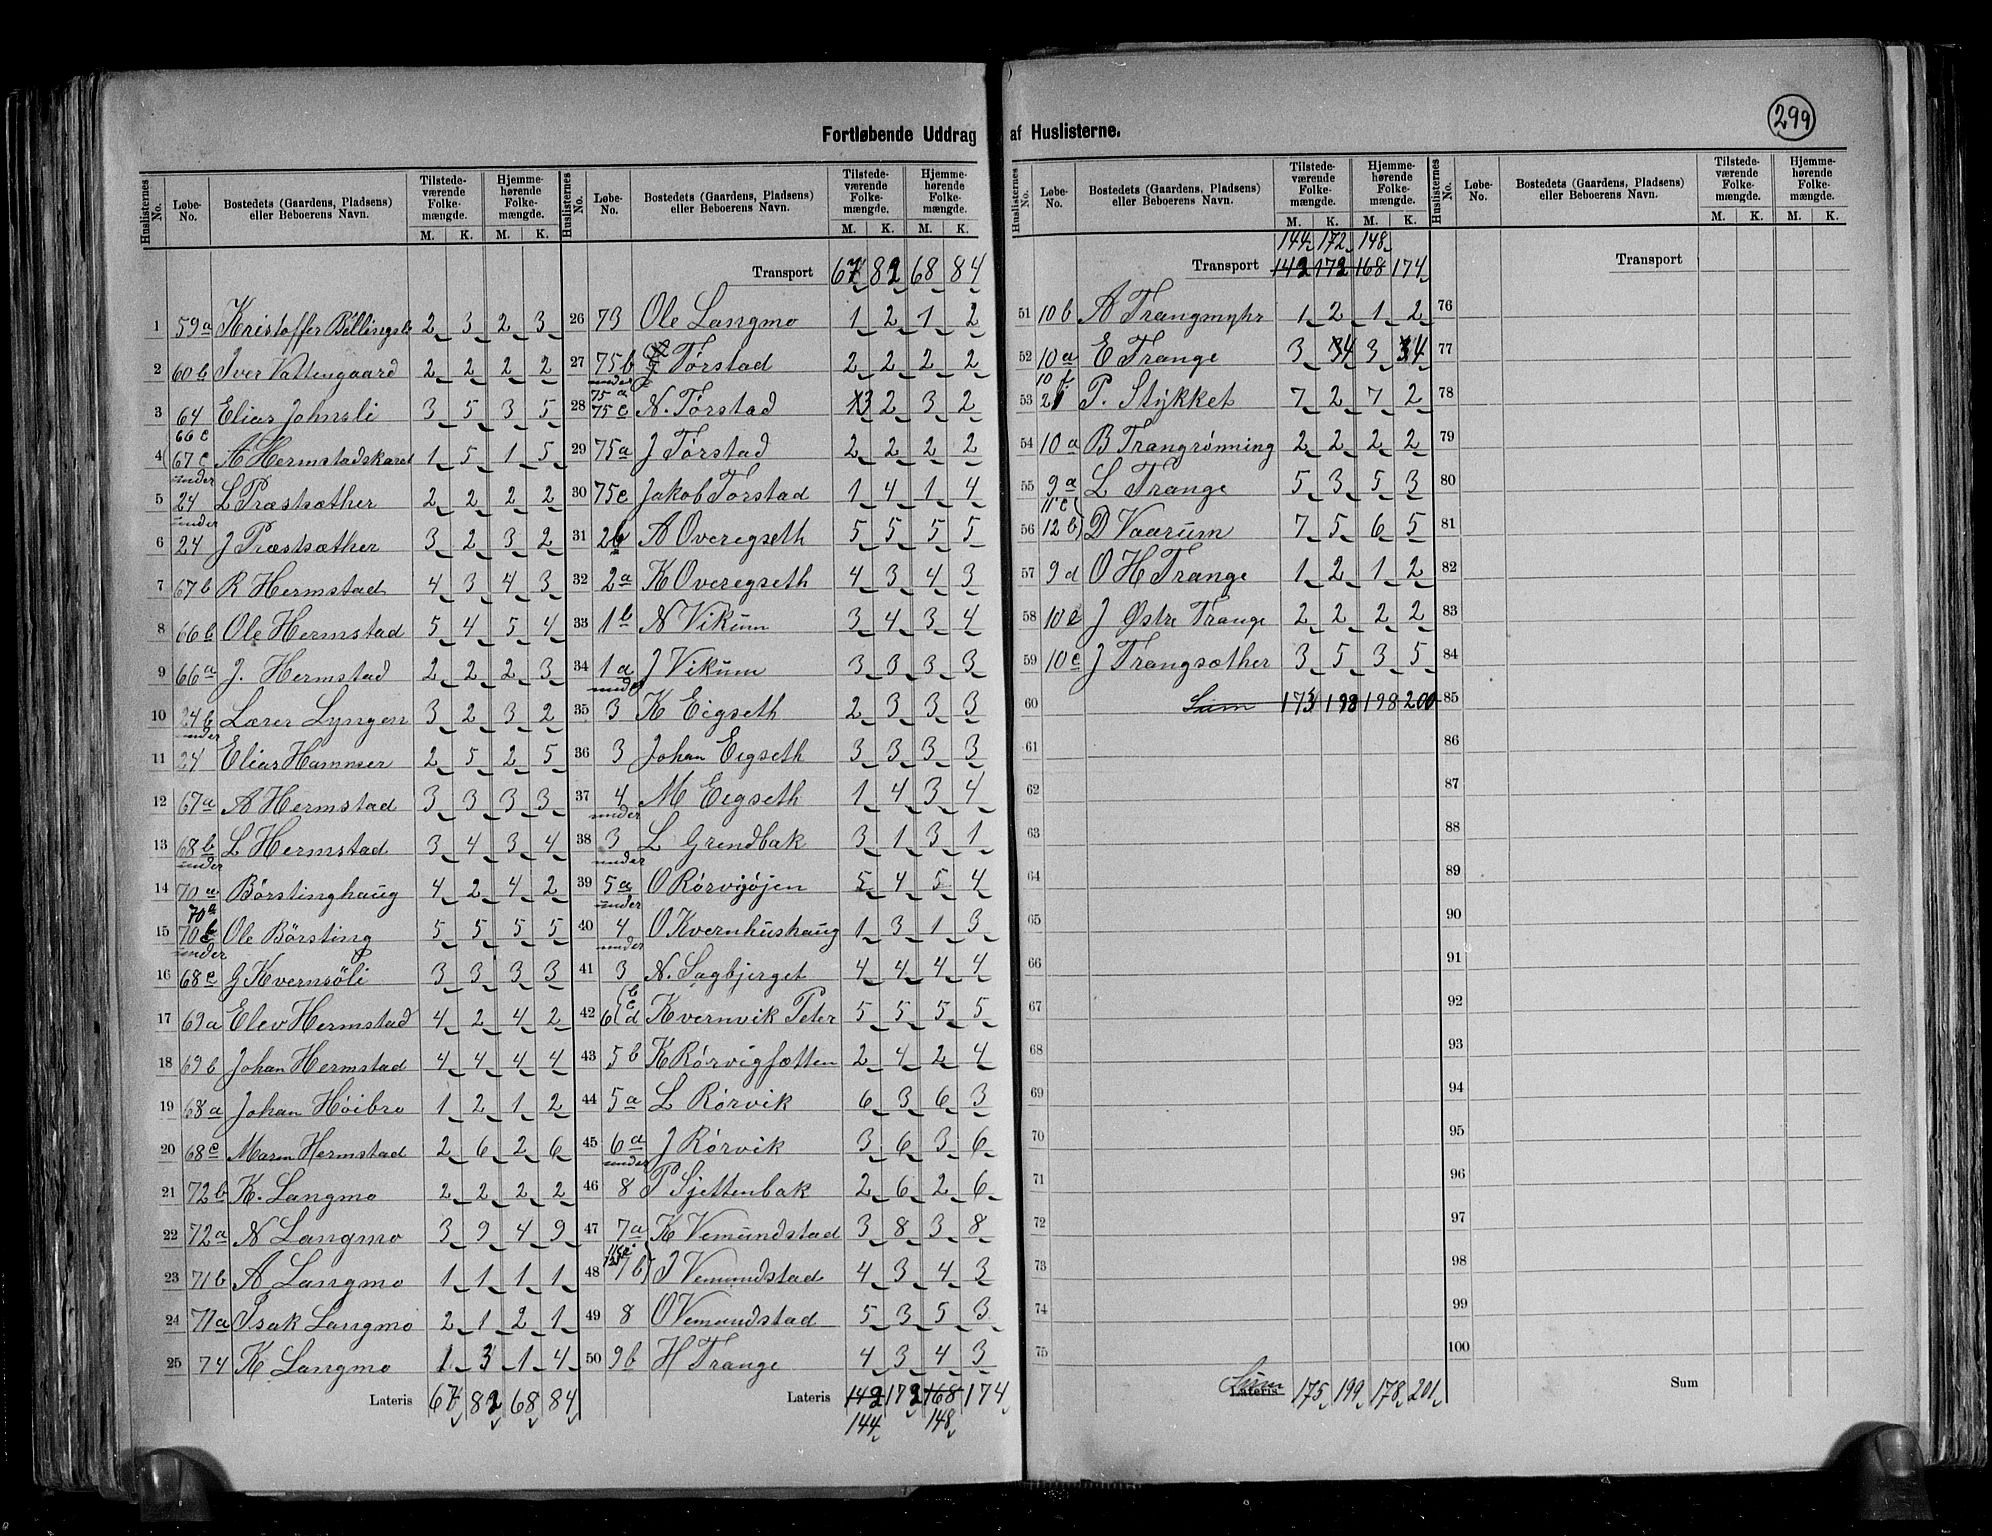 Fortløbende Uddrag af Huslisterne.
299
Huslisternes No. Løbe-No. Bostedets (Gaardens, Pladsens) eller Beboerens Navn. Tilstede-værende Folke-mængde. M. K. Hjemme-hørende Folke-mængde. M. K.
1 59a Kristoffer Billingsli 2 3 2 3
2 60b Iver Vattengaard 2 2 2 2
3 64 Elias Johnsli 3 5 3 5
4 66c 67c A Hermstadskaret 1 5 1 5
5 under 24 L Præstsæther 2 2 2 2
6 under 24 J Præstsæther 3 2 3 2
7 67b R Hermstad 4 3 4 3
8 66b Ole Hermstad 5 4 5 4
9 66a J. Hermstad 2 2 2 3
10 24b Lærer Lyngen 3 2 3 2
11 under 24 Elias Hammer 2 5 2 5
12 67a A Hermstad 3 3 3 3
13 68b L Hermstad 3 4 3 4
14 under 70a Börstinghaug 4 2 4 2
15 70a 70b Ole Börsting 5 5 5 5
16 under 68c G Kvernsöli 3 3 3 3
17 69a Elev Hermstad 4 2 4 2
18 69b Johan Hermstad 4 4 4 4
19 68a Johan Höibro 1 2 1 2
20 68c Maren Hermstad 2 6 2 6
21 72b K. Langmo 2 2 2 2
22 72a N Langmo 3 9 4 9
23 71b A Langmo 1 1 1 1
24 71a Isak Langmo 2 1 2 1
25 74 K Langmo 1 3 1 4
Lateris 67 82 68 84
Huslisternes No. Løbe-No. Bostedets (Gaardens, Pladsens) eller Beboerens Navn. Tilstede-værende Folke-mængde. M. K. Hjemme-hørende Folke-mængde. M. K.
Transport 67 82 68 84
26 73 Ole Langmo 1 2 1 2
27 75b Tørstad 2 2 2 2
28 under 75a 75c N. Tørstad 3 2 3 2
29 75a J Tørstad 2 2 2 2
30 75c Jakob Torstad 1 4 1 4
31 2b A Overegseth 5 5 5 5
32 2a K Overegseth 4 3 4 3
33 1b N Vikum 3 4 3 4
34 1a J Vikum 3 3 3 3
35 under 3 K Eigseth 2 3 3 3
36 3 Johan Eigseth 3 3 3 3
37 4 M Eigseth 1 4 3 4
38 under 3 L Grendbak 3 1 3 1
39 under 5a O Rørvigöjen 5 4 5 4
40 under 4 O Kvernhushaug 1 3 1 3
41 under 3 N. Sagbjerget 4 4 4 4
42 6 b c d Kvernvik Peter 5 5 5 5
43 5b K Rørvigsætten 2 4 2 4
44 5a L Rørvik 6 3 6 3
45 6a J Rørvik 3 6 3 6
46 under 8 P Sjettenbak 2 6 2 6
47 7a K Vemundstad 3 8 3 8
48 7b J Vemundstad 4 3 4 3
49 8 O Vemundstad 5 3 5 3
50 9b H Trange 4 3 4 3
Lateris 142 172 168 174
144 148
Huslisternes No. Løbe-No. Bostedets (Gaardens, Pladsens) eller Beboerens Navn. Tilstede-værende Folke-mængde. M. K. Hjemme-hørende Folke-mængde. M. K.
144 172 148
Transport 142 172 168 174
51 10b A Trangmyhr 1 2 1 2
52 10a E Trange 3 4 3 4
53 P. Stykket 7 2 7 2
54 10a B Trangrønning 2 2 2 2
55 9a L Trange 5 3 5 3
56 11c 12b D Vaarum 7 5 6 5
57 9d O H Trange 1 2 1 2
58 10c J Østre Trange 2 2 2 2
59 10c J Trangsæther 3 5 3 5
60 Sum 173 198 198 200
61
62
63
64
65
66
67
68
69
70
71
72
73
74
75
Sum Lateris 175 199 178 201
Huslisternes No. Løbe-No. Bostedets (Gaardens, Pladsens) eller Beboerens Navn. Tilstede-værende Folke-mængde. M. K. Hjemme-hørende Folke-mængde. M. K.
Transport
76
77
78
79
80
81
82
83
84
85
86
87
88
89
90
91
92
93
94
95
96
97
98
99
100
Sum